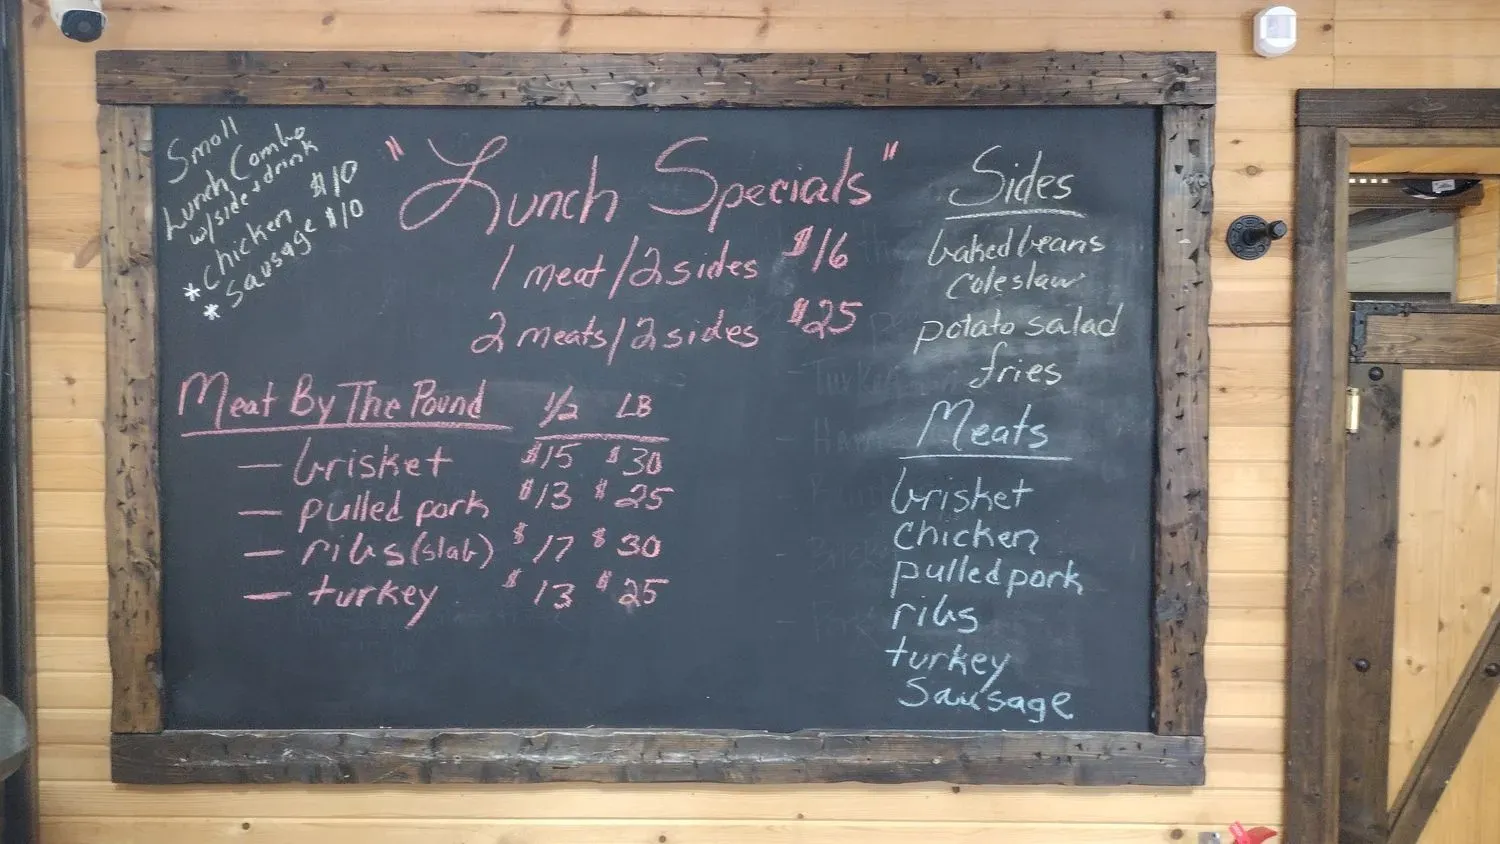 Small
Lunch Combo
w/side + drink
* chicken $10
* sausage $10
"Lunch Specials"
1 meat/2 sides $16
2 meats/2 sides $25
Meat By The Pound 1/2 LB
— brisket $15 $30
— pulled pork $13 $25
— ribs (slab) $17 $30
— turkey $13 $25
Sides
baked beans
coleslaw
potato salad
fries
Meats
brisket
chicken
pulled pork
ribs
turkey
sausage